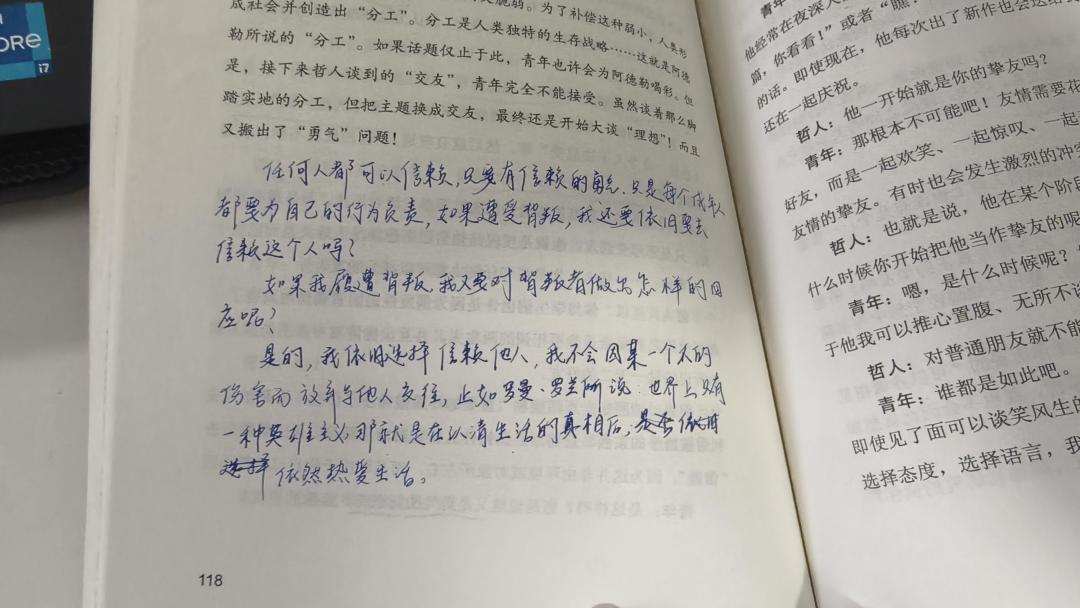 ORE
i7
成社会并创造出“分工”。分工是人类独特的生存战略……这就是阿德
勒所说的“分工”。如果话题仅止于此，青年也许会为阿德勒喝彩。但
是，接下来哲人谈到的“交友”，青年完全不能接受。虽然谈着那么脚
踏实地的分工，但把主题换成交友，最终还是开始大谈“理想”！而且
又搬出了“勇气”问题！
任何人都可以信赖，只要有信赖的勇气。只是每个成年人
都要为自己的行为负责，如果遭受背叛，我还要依旧要去
信赖这个人吗？
如果我履遭背叛，我又要对背叛者做出怎样的回
应呢？
是的，我依旧选择信赖他人，我不会因某一个人的
伤害而放弃与他人交往，正如罗曼·罗兰所说：世界上只有
一种英雄主义，那就是在认清生活的真相后，是否依旧
选择 依然热爱生活。
118
他经常在夜深人
篇，你看看！”或者“瞧
的话。即使现在，他每次出了新作也会送给
还在一起庆祝。
哲人：他一开始就是你的挚友吗？
青年：那根本不可能吧！友情需要花
好友，而是一起欢笑、一起惊叹、一起
友情的挚友。有时也会发生激烈的冲突
哲人：也就是说，他在某个阶段
什么时候你开始把他当作挚友的呢
青年：嗯，是什么时候呢？
于他我可以推心置腹、无所不谈
哲人：对普通朋友就不能
青年：谁都是如此吧。
即使见了面可以谈笑风生的
选择态度，选择语言，我